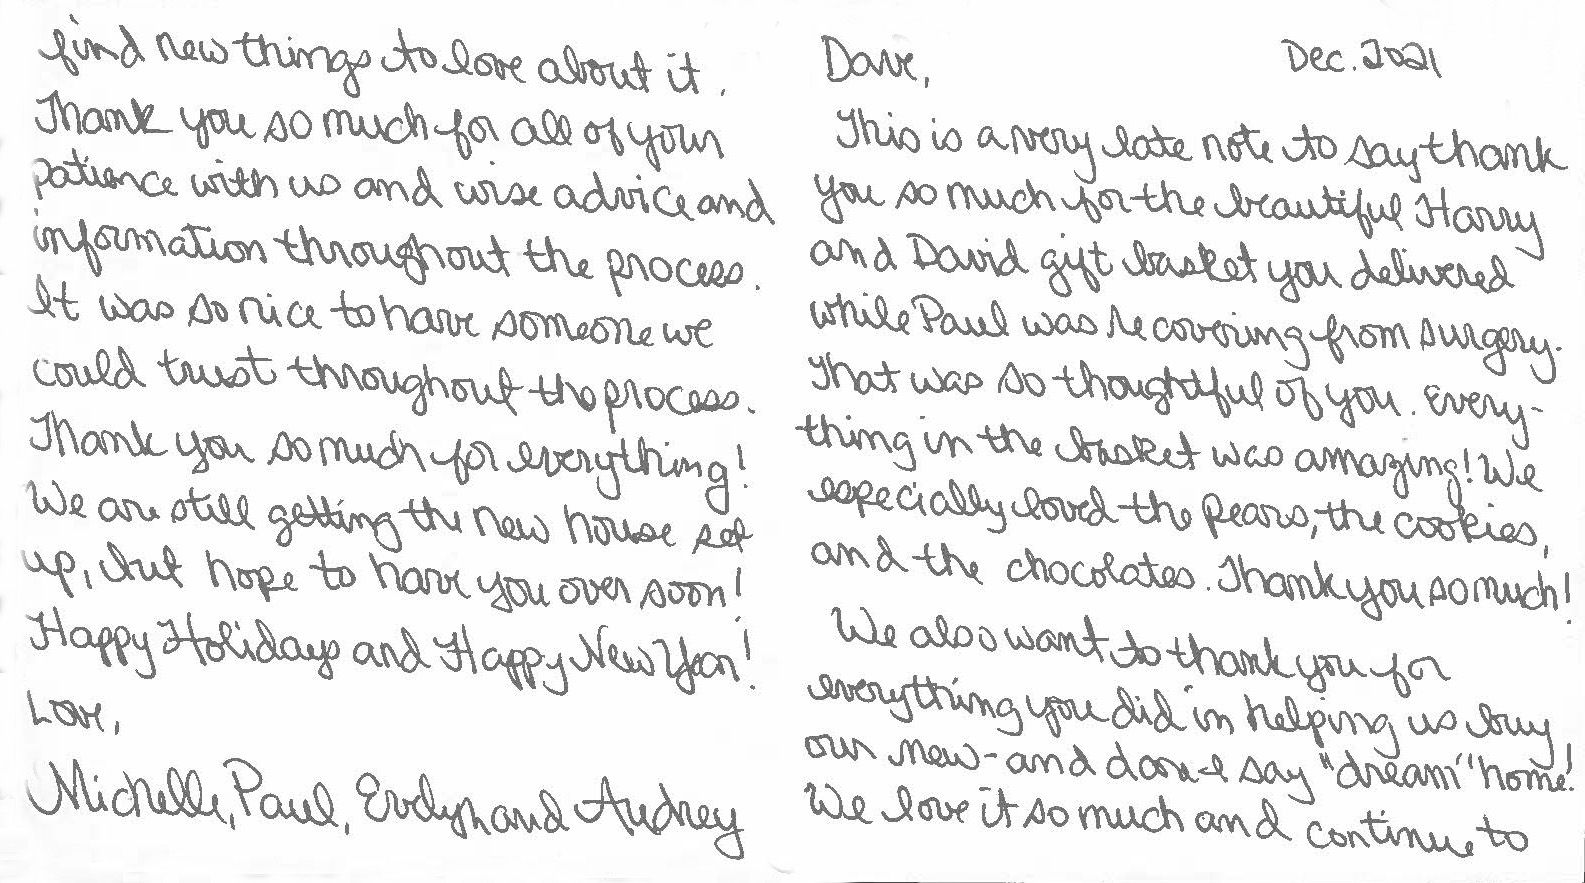 Dave, Dec. 2021
This is a very late note to say thank
you so much for the beautiful Harry
and David gift basket you delivered
while Paul was recovering from surgery.
That was so thoughtful of you. Every-
thing in the basket was amazing! We
especially loved the pears, the cookies,
and the chocolates. Thank you so much!
We also want to thank you for
everything you did in helping us buy
our new - and dare I say "dream" home!
We love it so much and continue to
find new things to love about it.
Thank you so much for all of your
patience with us and wise advice and
information throughout the process.
It was so nice to have someone we
could trust throughout the process.
Thank you so much for everything!
We are still getting the new house set
up, but hope to have you over soon!
Happy Holidays and Happy New Year!
Love,
Michelle, Paul, Evelyn and Audrey